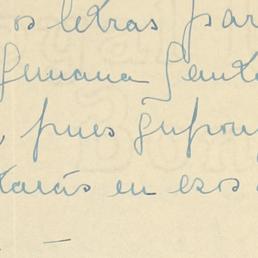 os letras par
Semana Sant
, pues supon
tarás en esos